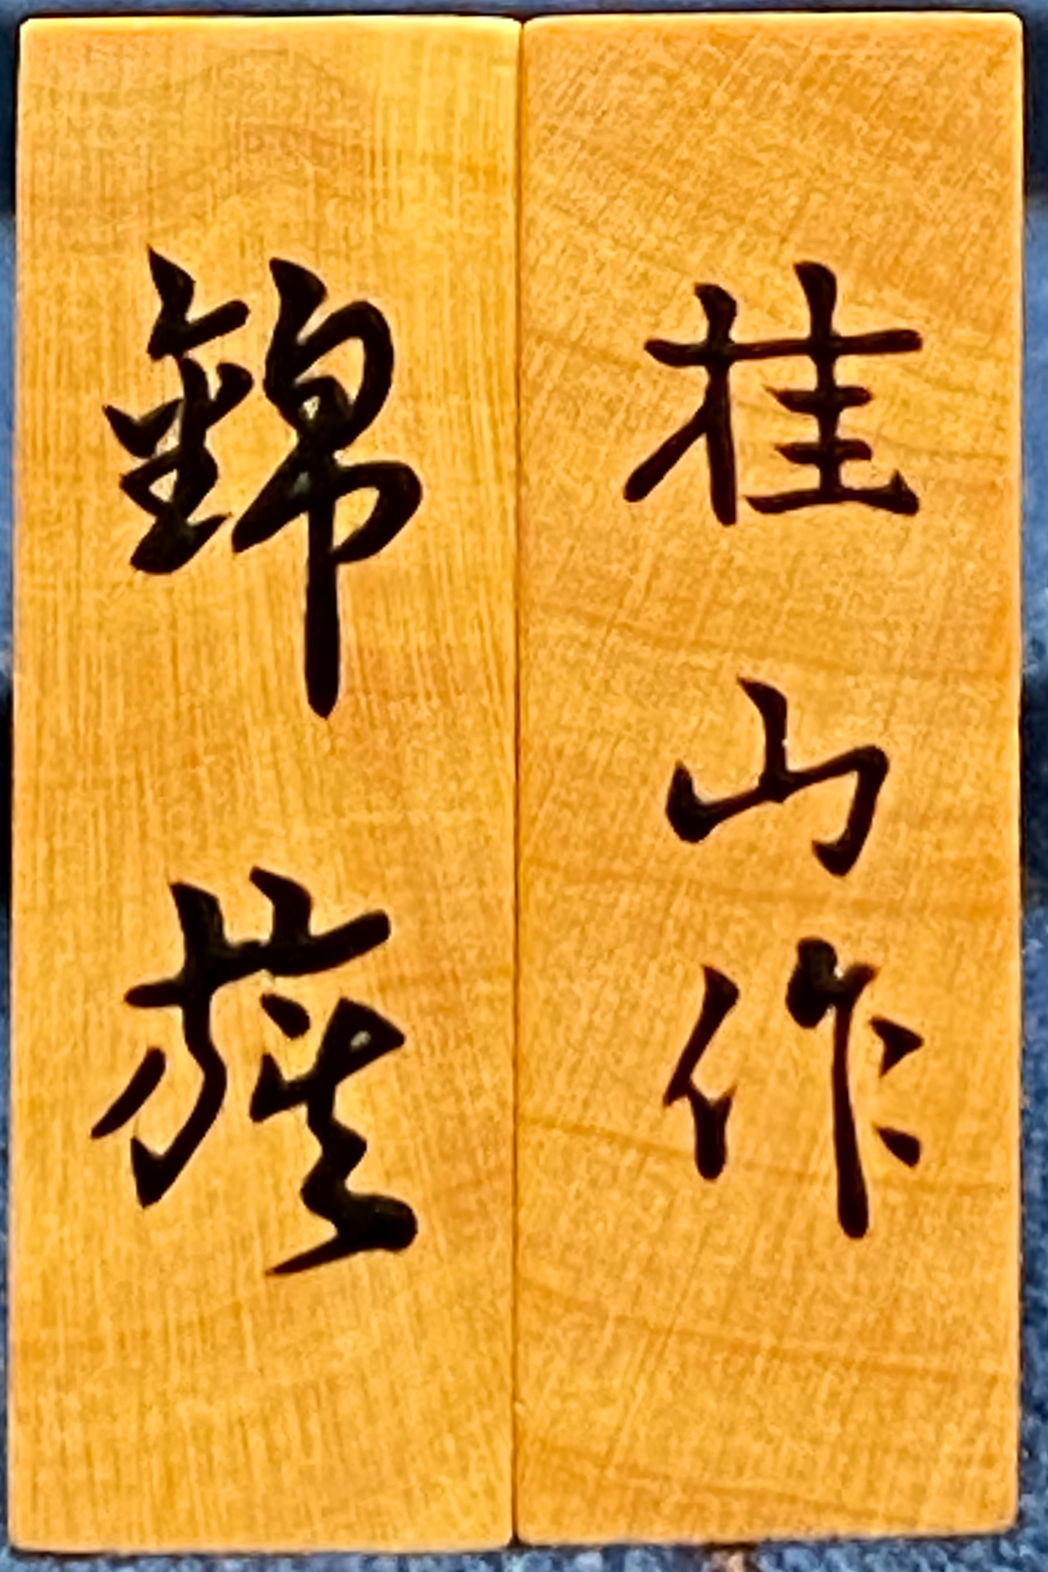 桂山作
錦旗